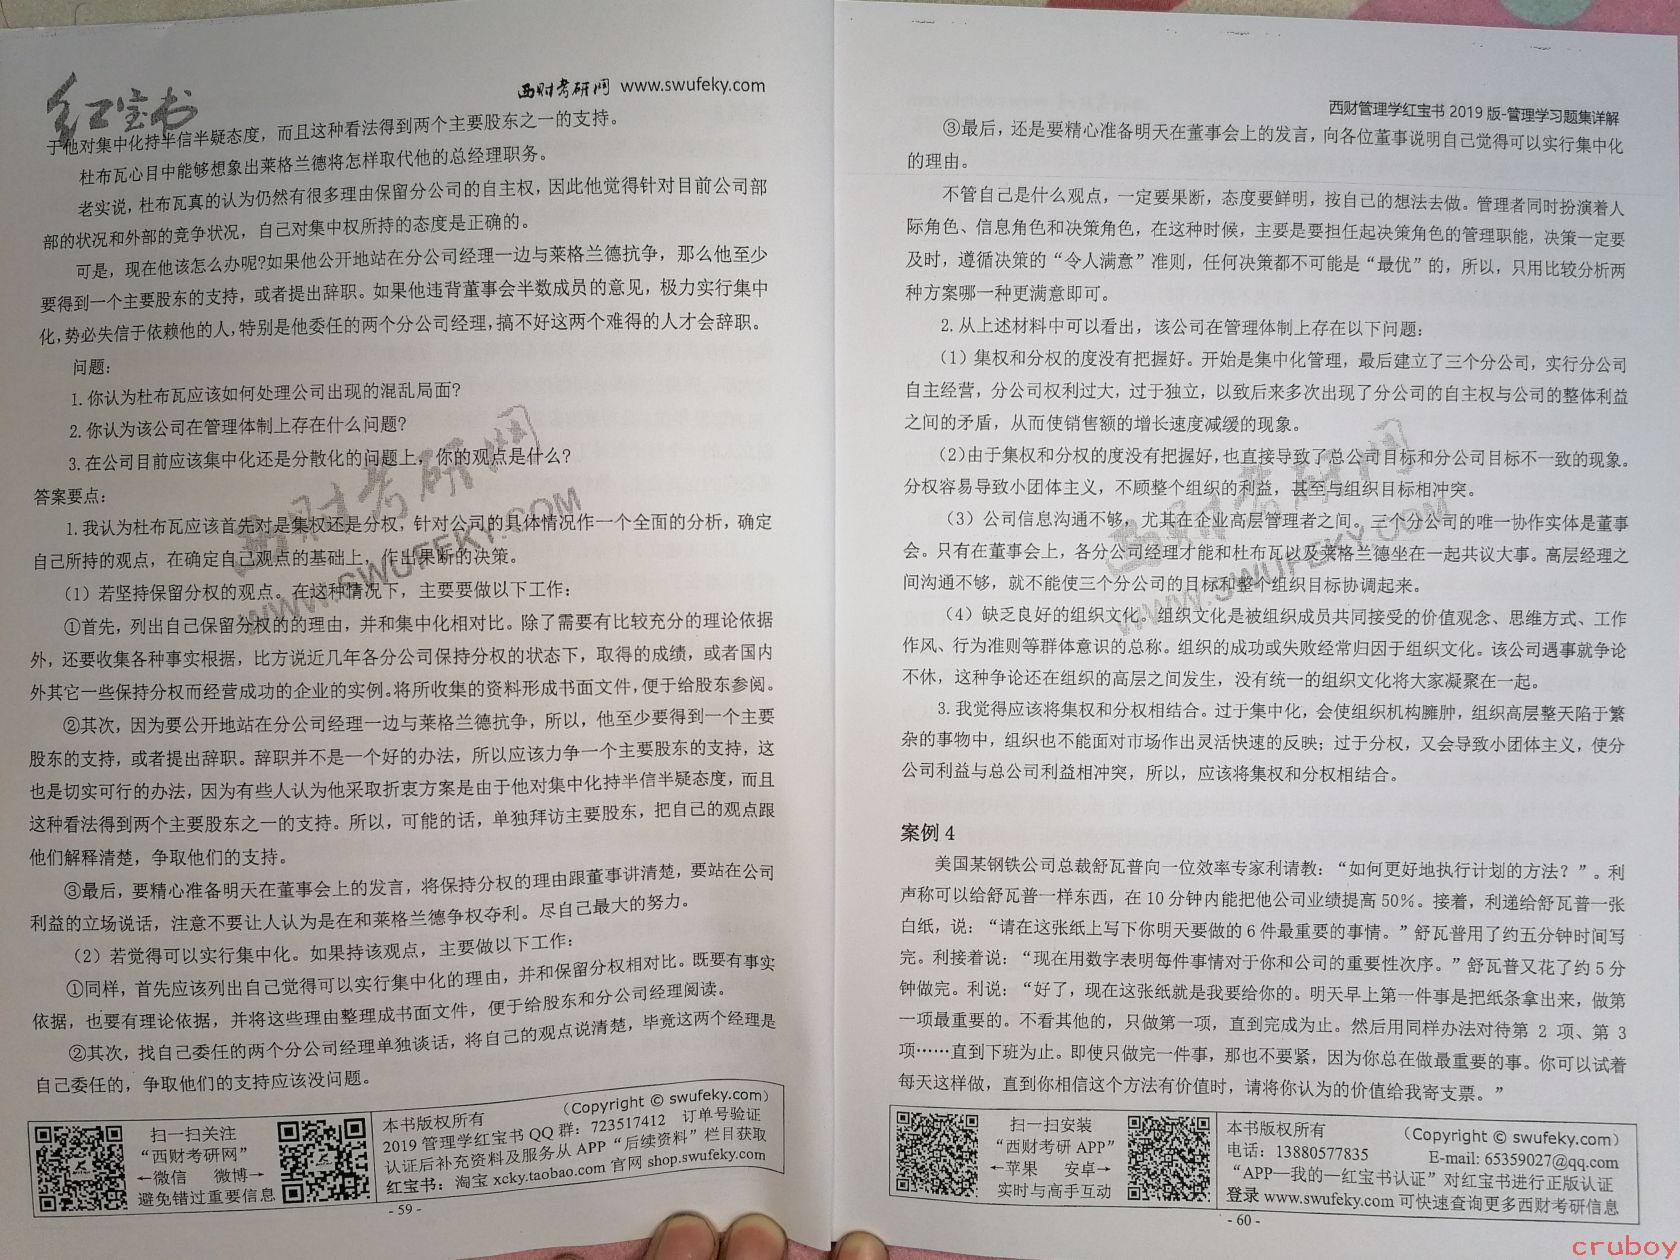 红宝书
西财考研网 www.swufeky.com
于他对集中化持半信半疑态度，而且这种看法得到两个主要股东之一的支持。
杜布瓦心目中能够想象出莱格兰德将怎样取代他的总经理职务。
老实说，杜布瓦真的认为仍然有很多理由保留分公司的自主权，因此他觉得针对目前公司部
部的状况和外部的竞争状况，自己对集中权所持的态度是正确的。
可是，现在他该怎么办呢?如果他公开地站在分公司经理一边与莱格兰德抗争，那么他至少
要得到一个主要股东的支持，或者提出辞职。如果他违背董事会半数成员的意见，极力实行集中
化，势必失信于依赖他的人，特别是他委任的两个分公司经理，搞不好这两个难得的人才会辞职。
问题：
1.你认为杜布瓦应该如何处理公司出现的混乱局面?
2.你认为该公司在管理体制上存在什么问题?
3.在公司目前应该集中化还是分散化的问题上，你的观点是什么?
答案要点：
1.我认为杜布瓦应该首先对是集权还是分权，针对公司的具体情况作一个全面的分析，确定
自己所持的观点，在确定自己观点的基础上，作出果断的决策。
（1）若坚持保留分权的观点。在这种情况下，主要要做以下工作：
①首先，列出自己保留分权的的理由，并和集中化相对比。除了需要有比较充分的理论依据
外，还要收集各种事实根据，比方说近几年各分公司保持分权的状态下，取得的成绩，或者国内
外其它一些保持分权而经营成功的企业的实例。将所收集的资料形成书面文件，便于给股东参阅。
②其次，因为要公开地站在分公司经理一边与莱格兰德抗争，所以，他至少要得到一个主要
股东的支持，或者提出辞职。辞职并不是一个好的办法，所以应该力争一个主要股东的支持，这
也是切实可行的办法，因为有些人认为他采取折衷方案是由于他对集中化持半信半疑态度，而且
这种看法得到两个主要股东之一的支持。所以，可能的话，单独拜访主要股东，把自己的观点跟
他们解释清楚，争取他们的支持。
③最后，要精心准备明天在董事会上的发言，将保持分权的理由跟董事讲清楚，要站在公司
利益的立场说话，注意不要让人认为是在和莱格兰德争权夺利。尽自己最大的努力。
（2）若觉得可以实行集中化。如果持该观点，主要做以下工作：
①同样，首先应该列出自己觉得可以实行集中化的理由，并和保留分权相对比。既要有事实
依据，也要有理论依据，并将这些理由整理成书面文件，便于给股东和分公司经理阅读。
②其次，找自己委任的两个分公司经理单独谈话，将自己的观点说清楚，毕竟这两个经理是
自己委任的，争取他们的支持应该没问题。
西财考研网
WWW.SWUFEKY.COM
扫一扫关注
“西财考研网”
←微信 微博→
避免错过重要信息
本书版权所有 （Copyright © swufeky.com）
2019 管理学红宝书 QQ 群：723517412 订单号验证
认证后补充资料及服务从 APP “后续资料” 栏目获取
红宝书：淘宝 xcky.taobao.com 官网 shop.swufeky.com
- 59 -
西财管理学红宝书 2019 版-管理学习题集详解
③最后，还是要精心准备明天在董事会上的发言，向各位董事说明自己觉得可以实行集中化
的理由。
不管自己是什么观点，一定要果断，态度要鲜明，按自己的想法去做。管理者同时扮演着人
际角色、信息角色和决策角色，在这种时候，主要是要担任起决策角色的管理职能，决策一定要
及时，遵循决策的“令人满意”准则，任何决策都不可能是“最优”的，所以，只用比较分析两
种方案哪一种更满意即可。
2.从上述材料中可以看出，该公司在管理体制上存在以下问题：
（1）集权和分权的度没有把握好。开始是集中化管理，最后建立了三个分公司，实行分公司
自主经营，分公司权利过大，过于独立，以致后来多次出现了分公司的自主权与公司的整体利益
之间的矛盾，从而使销售额的增长速度减缓的现象。
（2）由于集权和分权的度没有把握好，也直接导致了总公司目标和分公司目标不一致的现象。
分权容易导致小团体主义，不顾整个组织的利益，甚至与组织目标相冲突。
（3）公司信息沟通不够，尤其在企业高层管理者之间。三个分公司的唯一协作实体是董事
会。只有在董事会上，各分公司经理才能和杜布瓦以及莱格兰德坐在一起共议大事。高层经理之
间沟通不够，就不能使三个分公司的目标和整个组织目标协调起来。
（4）缺乏良好的组织文化。组织文化是被组织成员共同接受的价值观念、思维方式、工作
作风、行为准则等群体意识的总称。组织的成功或失败经常归因于组织文化。该公司遇事就争论
不休，这种争论还在组织的高层之间发生，没有统一的组织文化将大家凝聚在一起。
3.我觉得应该将集权和分权相结合。过于集中化，会使组织机构臃肿，组织高层整天陷于繁
杂的事物中，组织也不能面对市场作出灵活快速的反映；过于分权，又会导致小团体主义，使分
公司利益与总公司利益相冲突，所以，应该将集权和分权相结合。
案例 4
美国某钢铁公司总裁舒瓦普向一位效率专家利请教：“如何更好地执行计划的方法？”。利
声称可以给舒瓦普一样东西，在 10 分钟内能把他公司业绩提高 50%。接着，利递给舒瓦普一张
白纸，说：“请在这张纸上写下你明天要做的 6 件最重要的事情。”舒瓦普用了约五分钟时间写
完。利接着说：“现在用数字表明每件事情对于你和公司的重要性次序。”舒瓦普又花了约 5 分
钟做完。利说：“好了，现在这张纸就是我要给你的。明天早上第一件事是把纸条拿出来，做第
一项最重要的。不看其他的，只做第一项，直到完成为止。然后用同样办法对待第 2 项、第 3
项……直到下班为止。即使只做完一件事，那也不要紧，因为你总在做最重要的事。你可以试着
每天这样做，直到你相信这个方法有价值时，请将你认为的价值给我寄支票。”
西财考研网
WWW.SWUFEKY.COM
扫一扫安装
“西财考研 APP”
←苹果 安卓→
实时与高手互动
本书版权所有 （Copyright © swufeky.com）
电话：13880577835 E-mail: 65359027@qq.com
“APP—我的—红宝书认证”对红宝书进行正版认证
登录 www.swufeky.com 可快速查询更多西财考研信息
- 60 -
cruboy